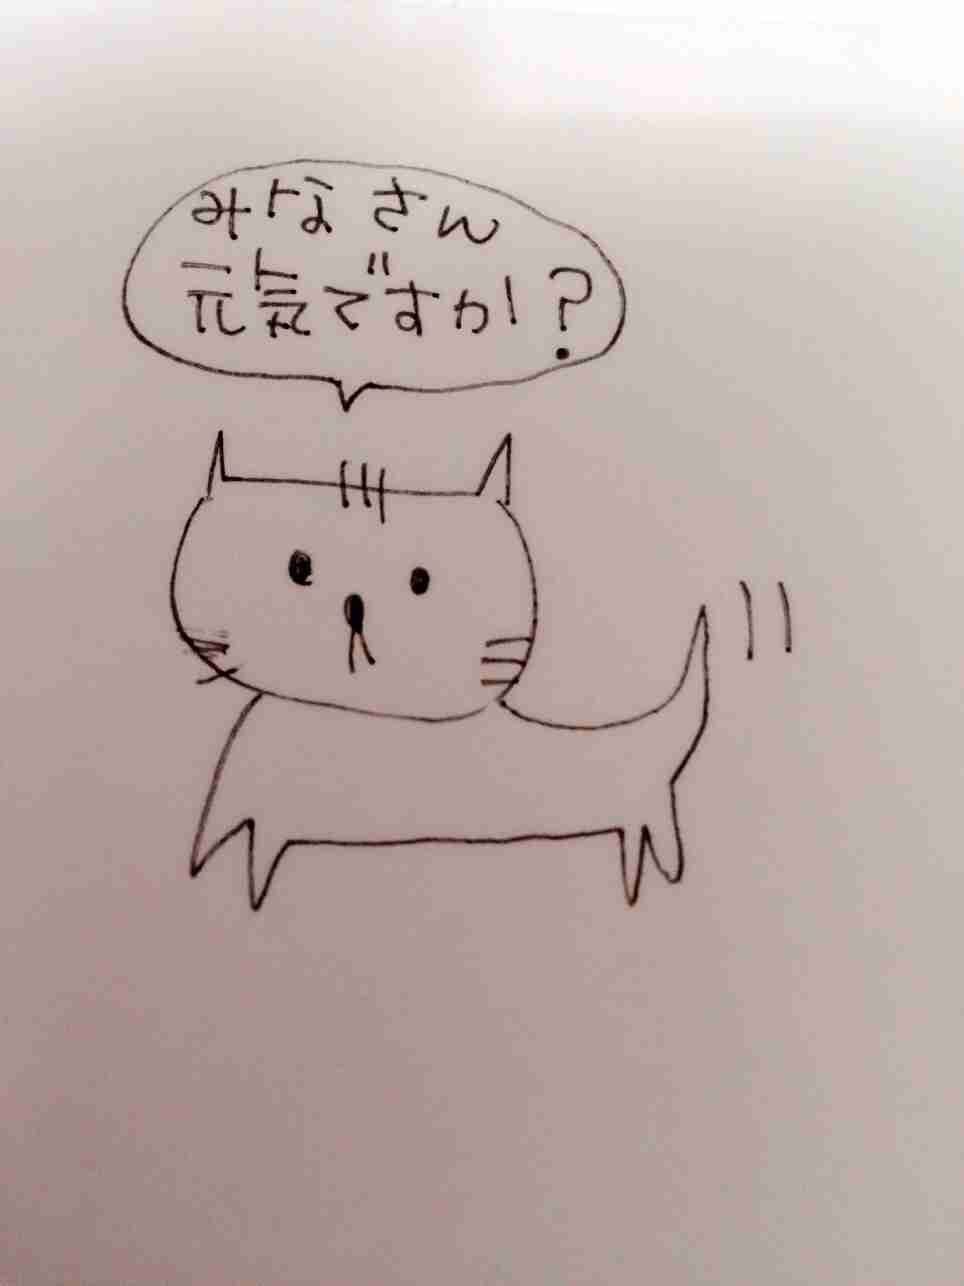 みなさん
元気ですか?